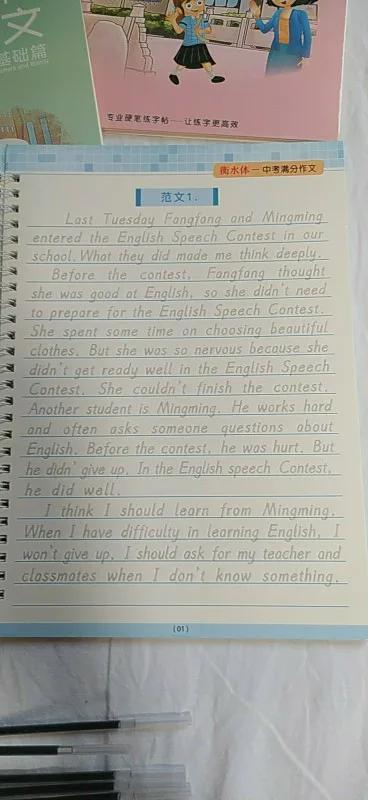 文
基础篇
专业硬笔练字帖——让练字更高效
衡水体—中考满分作文
范文1.
Last Tuesday Fangfang and Mingming
entered the English Speech Contest in our
school. What they did made me think deeply.
Before the contest, Fangfang thought
she was good at English, so she didn't need
to prepare for the English Speech Contest.
She spent some time on choosing beautiful
clothes. But she was so nervous because she
didn't get ready well in the English Speech
Contest. She couldn't finish the contest.
Another student is Mingming. He works hard
and often asks someone questions about
English. Before the contest, he was hurt. But
he didn' give up. In the English speech Contest,
he did well.
I think I should learn from Mingming.
When I have difficulty in learning English, I
won't give up. I should ask for my teacher and
classmates when I don't know something.
(01)